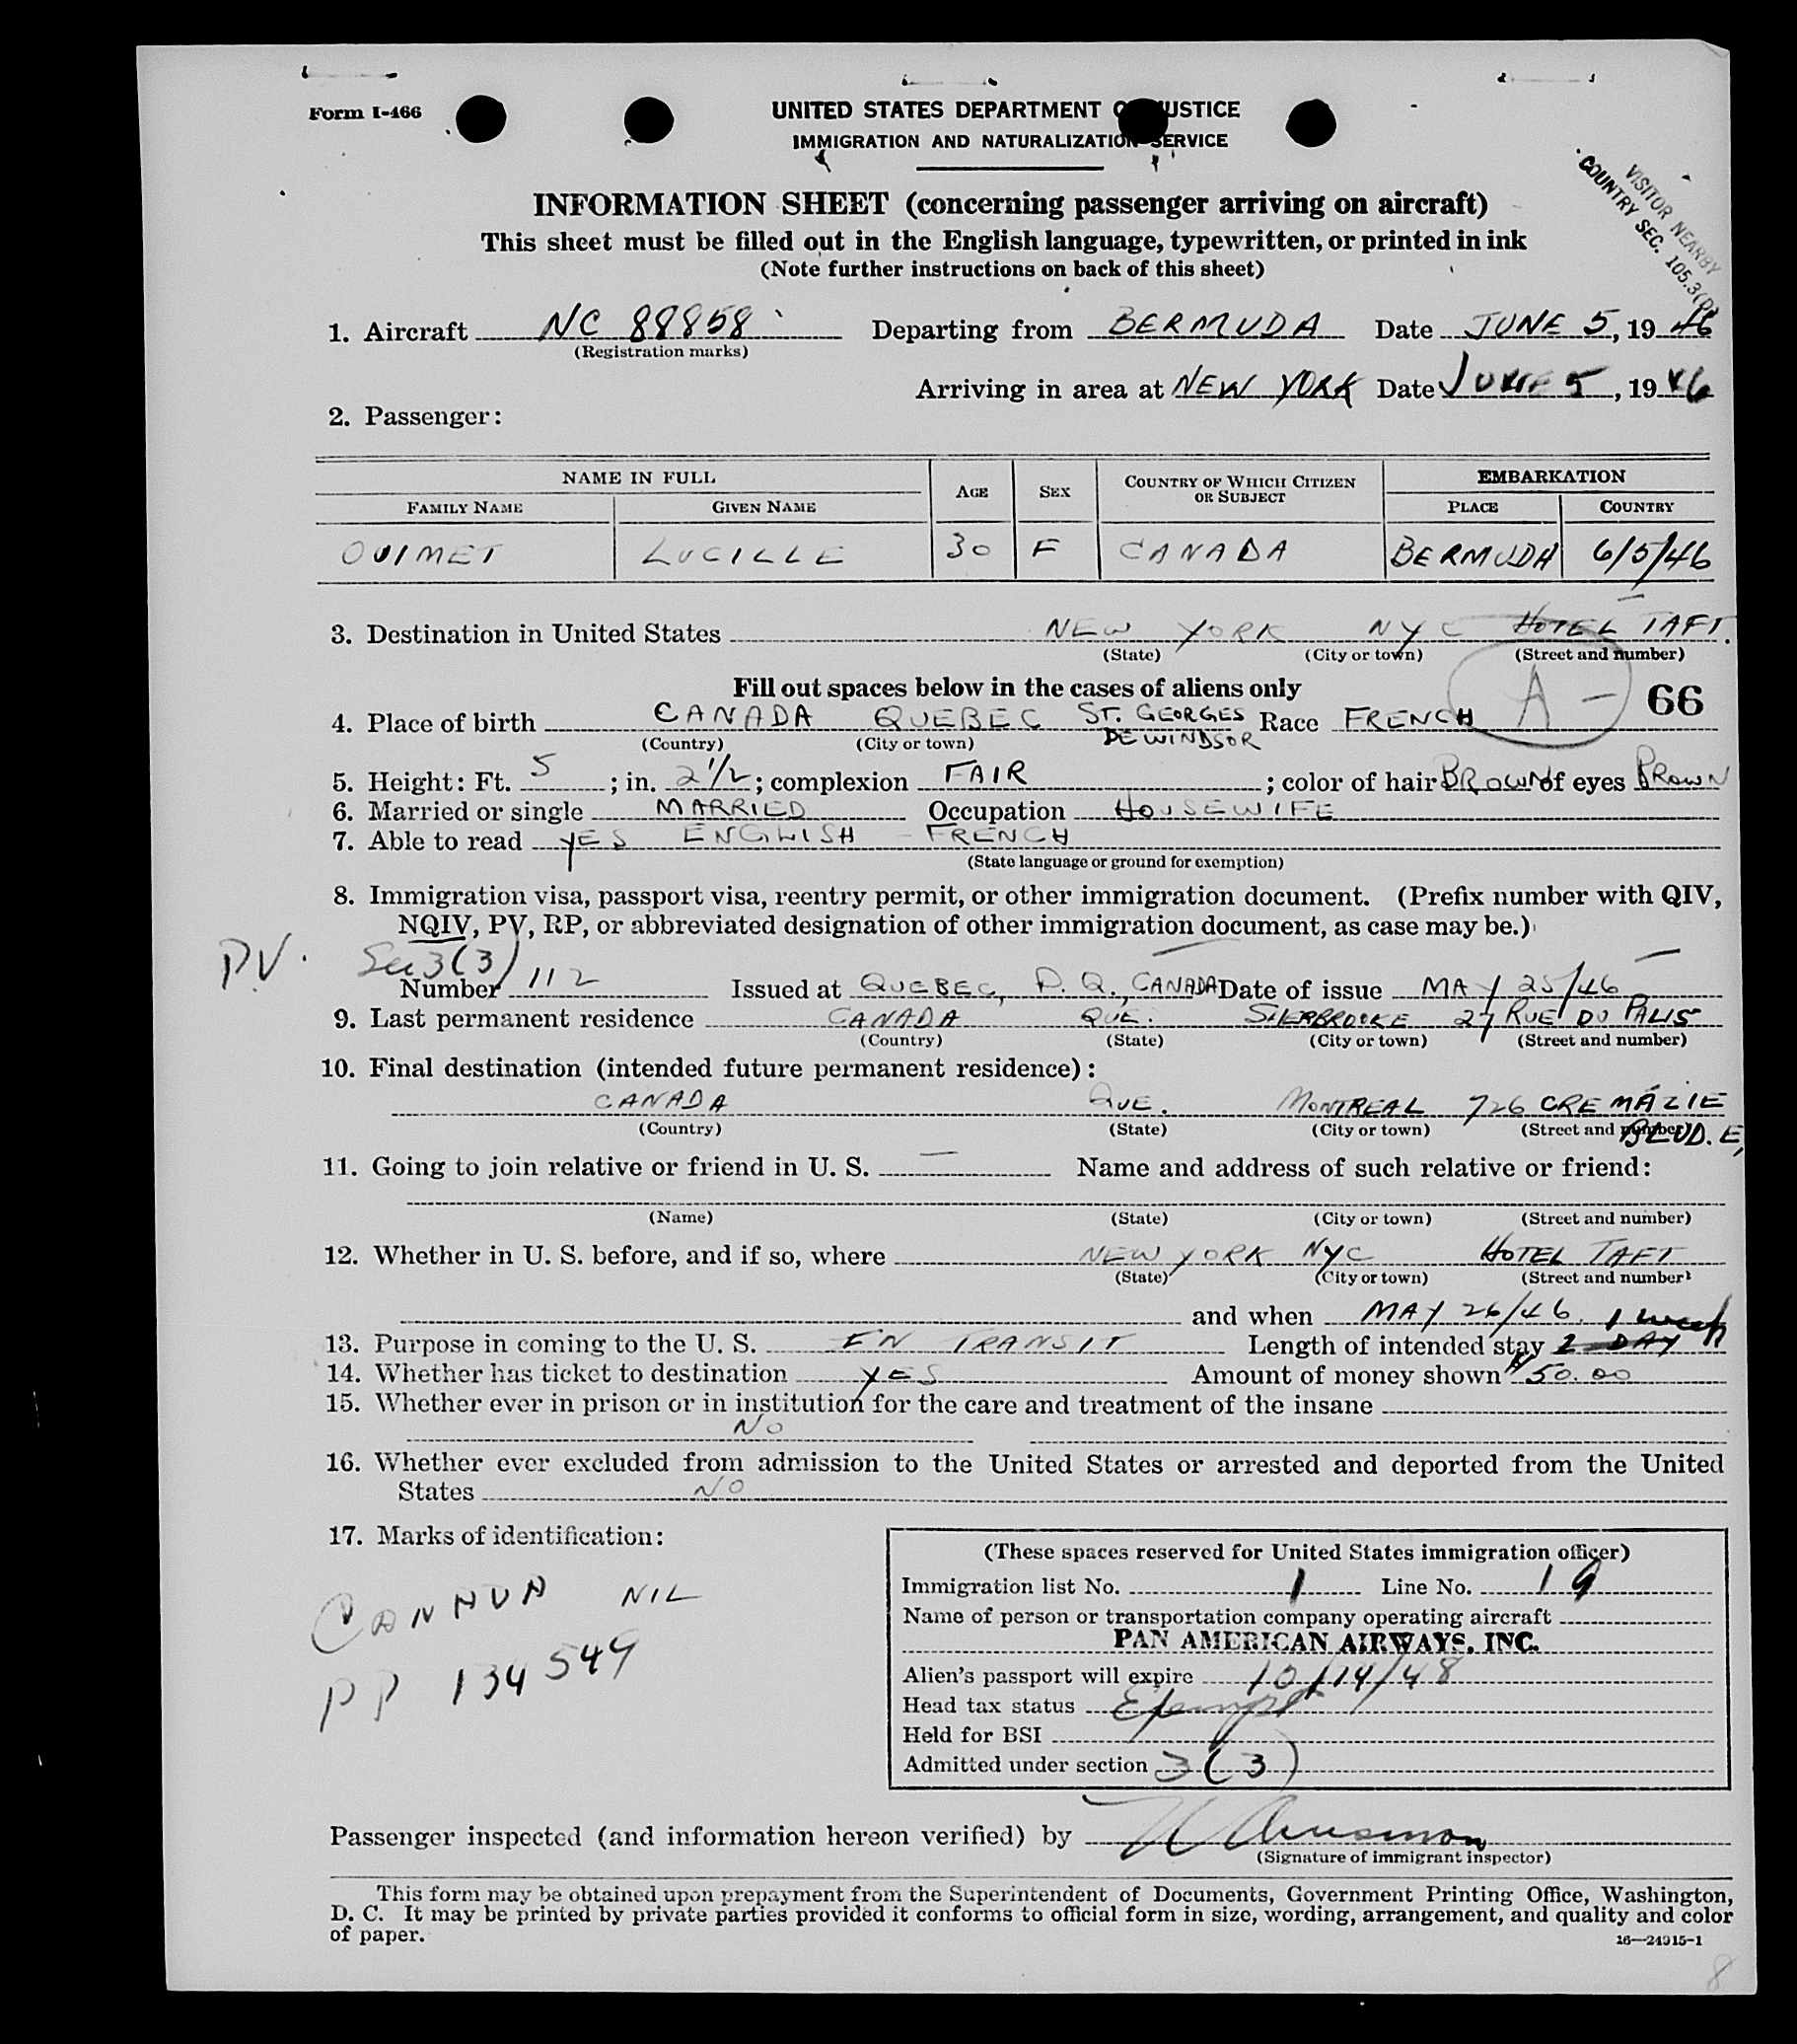 Form I-466
UNITED STATES DEPARTMENT OF JUSTICE
IMMIGRATION AND NATURALIZATION SERVICE
VISITOR NEARBY
COUNTRY SEC. 105.3(b)
INFORMATION SHEET (concerning passenger arriving on aircraft)
This sheet must be filled out in the English language, typewritten, or printed in ink
(Note further instructions on back of this sheet)
1. Aircraft NC 88858 Departing from BERMUDA Date JUNE 5, 1946
(Registration marks)
Arriving in area at NEW YORK Date JUNE 5, 1946
2. Passenger:
NAME IN FULL AGE SEX COUNTRY OF WHICH CITIZEN OR SUBJECT EMBARKATION
FAMILY NAME GIVEN NAME PLACE COUNTRY
OUIMET LUCILLE 30 F CANADA BERMUDA 6/5/46
3. Destination in United States NEW YORK NYC HOTEL TAFT.
(State) (City or town) (Street and number)
Fill out spaces below in the cases of aliens only
A - 66
4. Place of birth CANADA QUEBEC ST. GEORGES DE WINDSOR Race FRENCH
(Country) (City or town)
5. Height: Ft. 5; in. 2 1/2; complexion FAIR; color of hair BROWN of eyes BROWN
6. Married or single MARRIED Occupation HOUSEWIFE
7. Able to read YES ENGLISH - FRENCH
(State language or ground for exemption)
8. Immigration visa, passport visa, reentry permit, or other immigration document. (Prefix number with QIV,
NQIV, PV, RP, or abbreviated designation of other immigration document, as case may be.)
PV. Sec 3(3)
Number 112 Issued at QUEBEC, P.Q., CANADA Date of issue MAY 25/46
9. Last permanent residence CANADA QUE. SHERBROOKE 27 RUE DU PALIS
(Country) (State) (City or town) (Street and number)
10. Final destination (intended future permanent residence):
CANADA QUE. MONTREAL 726 CREMAZIE BLVD. E,
(Country) (State) (City or town) (Street and number)
11. Going to join relative or friend in U. S. — Name and address of such relative or friend:
(Name) (State) (City or town) (Street and number)
12. Whether in U. S. before, and if so, where NEW YORK NYC HOTEL TAFT
(State) (City or town) (Street and number)
and when MAY 26/46. 1 week
13. Purpose in coming to the U. S. IN TRANSIT Length of intended stay 2 DAY
14. Whether has ticket to destination YES Amount of money shown $50.00
15. Whether ever in prison or in institution for the care and treatment of the insane
NO
16. Whether ever excluded from admission to the United States or arrested and deported from the United
States NO
17. Marks of identification:
NIL
PP 134549
(These spaces reserved for United States immigration officer)
Immigration list No. 1 Line No. 19
Name of person or transportation company operating aircraft
PAN AMERICAN AIRWAYS, INC.
Alien's passport will expire 10/14/48
Head tax status Exempt
Held for BSI
Admitted under section 3(3)
Passenger inspected (and information hereon verified) by
(Signature of immigrant inspector)
This form may be obtained upon prepayment from the Superintendent of Documents, Government Printing Office, Washington,
D. C. It may be printed by private parties provided it conforms to official form in size, wording, arrangement, and quality and color
of paper.
16—24915-1
8